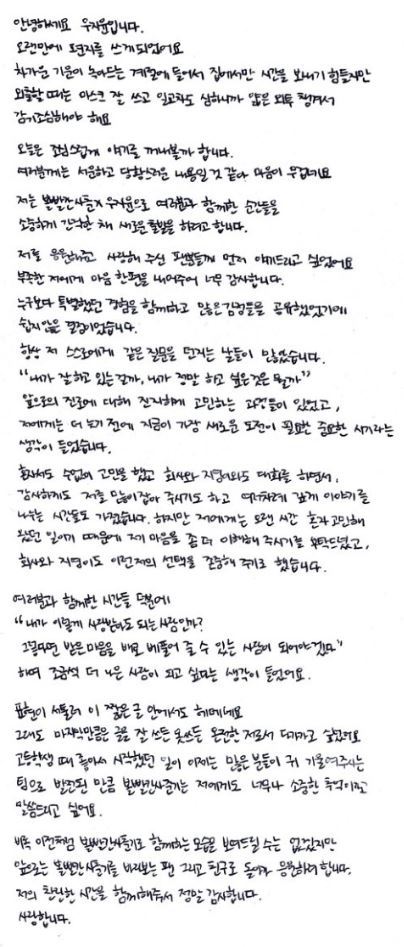 안녕하세요 우지윤입니다.
오랜만에 편지를 쓰게 되었어요
차가운 기운이 녹아드는 계절에 들어서 집에서만 시간을 보내기 힘들지만
외출할 때는 마스크 잘 쓰고 일교차도 심하니까 얇은 외투 챙겨서
감기조심해야 해요
오늘은 조심스럽게 얘기를 꺼내볼까 합니다.
여러분께는 서운하고 당황스러운 내용일 것 같아 마음이 무겁네요
저는 볼빨간사춘기 우지윤으로 여러분과 함께한 순간들을
소중하게 간직한 채 새로운 출발을 하려고 합니다.
저를 응원해주고 사랑해 주신 팬분들께 먼저 얘기드리고 싶었어요
부족한 저에게 마음 한편을 내어주어 너무 감사합니다.
누구보다 특별했던 경험을 함께하고 많은 감정들을 공유했었기에
쉽지 않은 결정이었습니다.
항상 저 스스로에게 같은 질문을 던지는 날들이 많았습니다.
“내가 잘 하고 있는 걸까, 내가 정말 하고 싶은 것은 뭘까”
앞으로의 진로에 대해 진지하게 고민하는 과정들이 있었고,
저에게는 더 늦기 전에 지금이 가장 새로운 도전이 필요한 중요한 시기라는
생각이 들었습니다.
혼자서도 수없이 고민을 했고 회사와 지영이와도 대화를 하면서,
감사하게도 저를 많이 잡아 주시기도 하고 여러차례 깊게 이야기를
나누는 시간들도 가졌습니다. 하지만 저에게는 오랜 시간 혼자 고민해
왔던 일이기 때문에 제 마음을 좀 더 이해해 주시기를 부탁드렸고,
회사와 지영이도 이런 저의 선택을 존중해 주기로 했습니다.
여러분과 함께한 시간들 덕분에
“내가 이렇게 사랑받아도 되는 사람인가?
그렇다면 받은 마음을 배로 베풀어 줄 수 있는 사람이 되어야겠다”
하며 조금씩 더 나은 사람이 되고 싶다는 생각이 들었어요.
표현이 서툴러 이 짧은 글 안에서도 헤매네요
그래도 마지막만큼은 글을 잘 쓰든 못쓰든 온전한 저로서 다가가고 싶었어요
고등학생 때 좋아서 시작했던 일이 이제는 많은 분들이 귀 기울여주시는
팀으로 발전된 만큼 볼빨간사춘기는 저에게도 너무나 소중한 추억이라고
말씀드리고 싶어요.
비록 이전처럼 볼빨간사춘기로 함께하는 모습을 보여드릴 수는 없겠지만
앞으로는 볼빨간사춘기를 바라보는 팬 그리고 친구로 돌아가 응원하려 합니다.
저의 찬란한 시간을 함께해주셔서 정말 감사합니다.
사랑합니다.